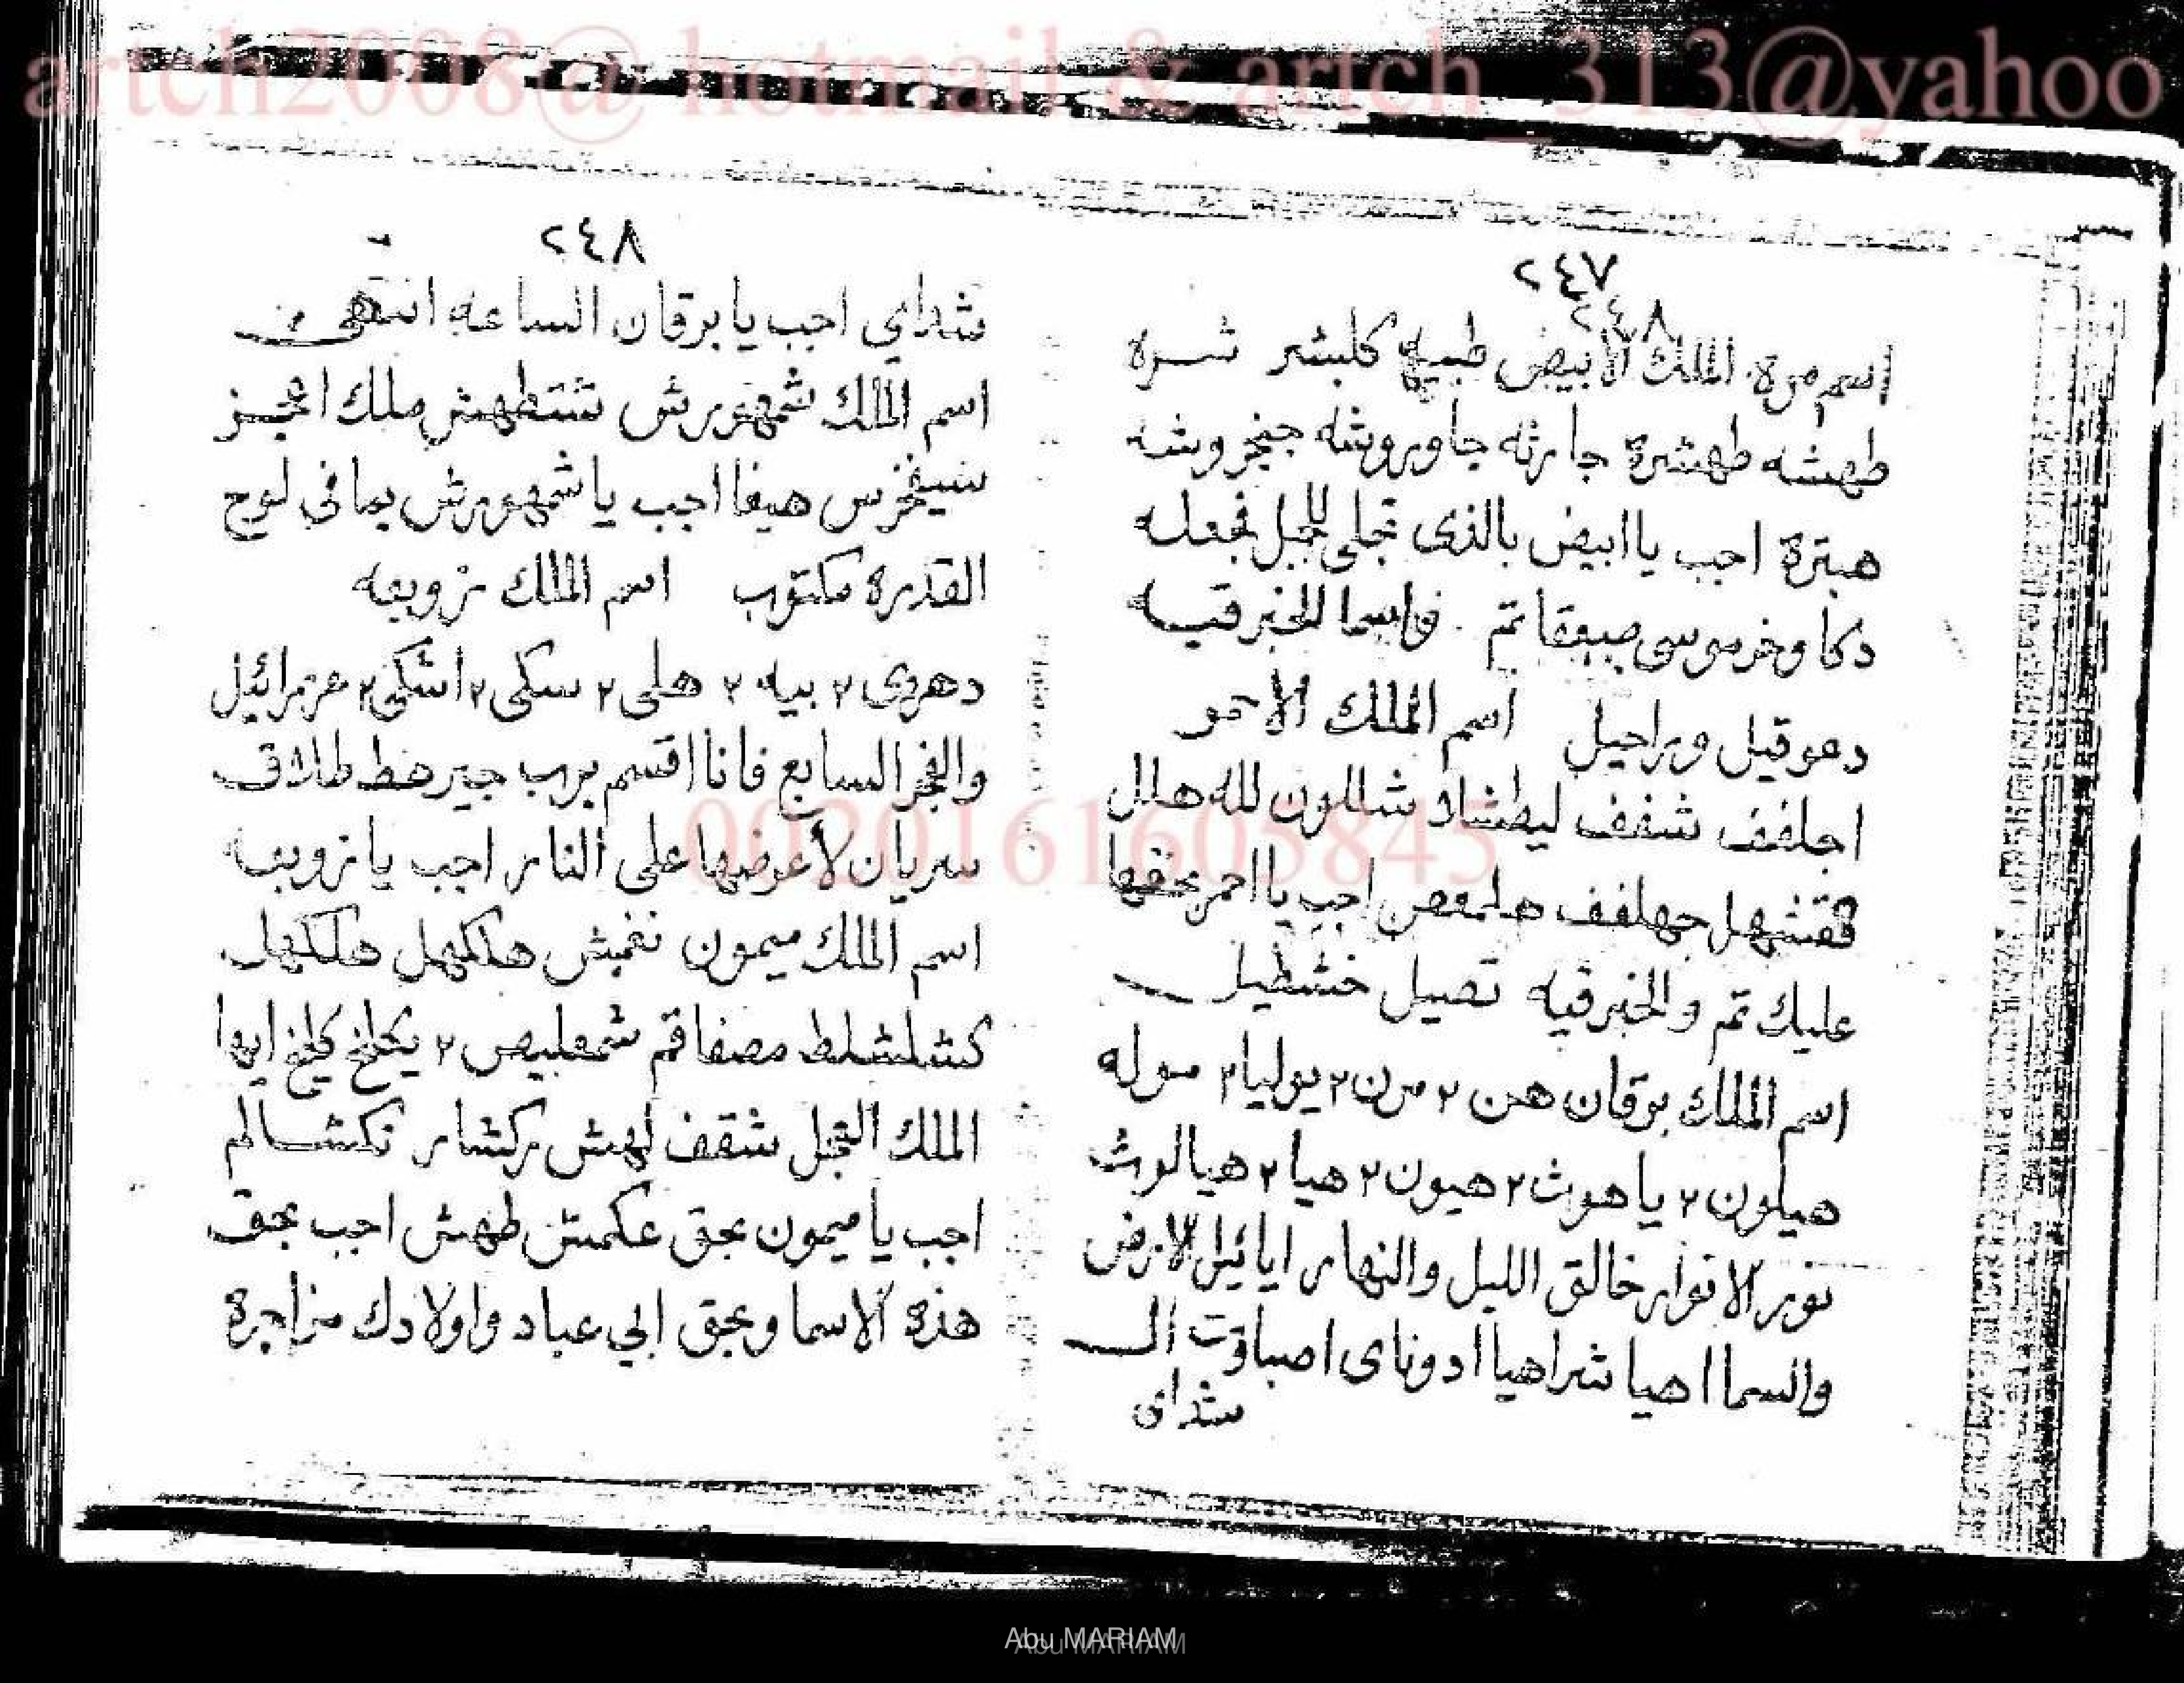 artch2008@ hotmail & artch_313@yahoo
٢٤٧
٢٤٨
اسم مرة الملك الأبيض طبيه كلبشر شره
طهشه طهشرة جارثه جاوروشه جنجروشه
هبترة اجب يا ابيض بالذى تجلى للجبل فجعله
دكا وخر موسى صعقا تم واسما للخبرقيه
دعوقيل وراحيل اسم الملك الاحمر
اجلفف شفف ليطشاد شللون لله هلل
فقتشهل جهلفف هلمعص اجب يا احمر بحقها
عليك تم والخبرقيه تصيل خشطيل
اسم الملك برقان هن ٢ مرن ٢ يوليا ٢ سوله
هيلون ٢ يا هوث ٢ هيون ٢ هيا ٢ هيالوث
نور الانوار خالق الليل والنهار ايائيل الارض
والسما اهيا شراهيا ادوناى اصباوت ال
شداى
٢٤٨
شداي اجب يا برقان الساعه انتهى
اسم الملك شمهورش شتطهش ملك
هيفا اجب يا شمهورش بما فى لوح
القدرة مكتوب اسم الملك زوبعه
دهرى ٢ بيه ٢ هلى ٢ سكى ٢ اشكى ٢ عزرائيل
والفجر السابع فانا اقسم برب جير هط طلاق
سريان لأعوضها على النار اجب يا زوبعه
اسم الملك ميمون نغمش هلكهل هلكهل
كشلشلط مصفاقم شمعليص ٢ يكلخ كلخ ايها
الملك العجل شقف لهش ركشار نكشالم
اجب يا ميمون بحق عكمش طهش اجب بحق
هذه الاسما وبحق ابي عباد واولادك مزاجرة
0020161605845
Abu MARIAM
Abu MARIAM